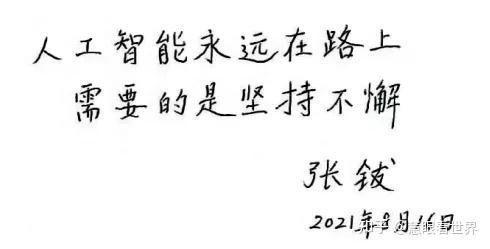 人工智能永远在路上
需要的是坚持不懈
张钹
2021年9月16日
知乎 @慧眼看世界